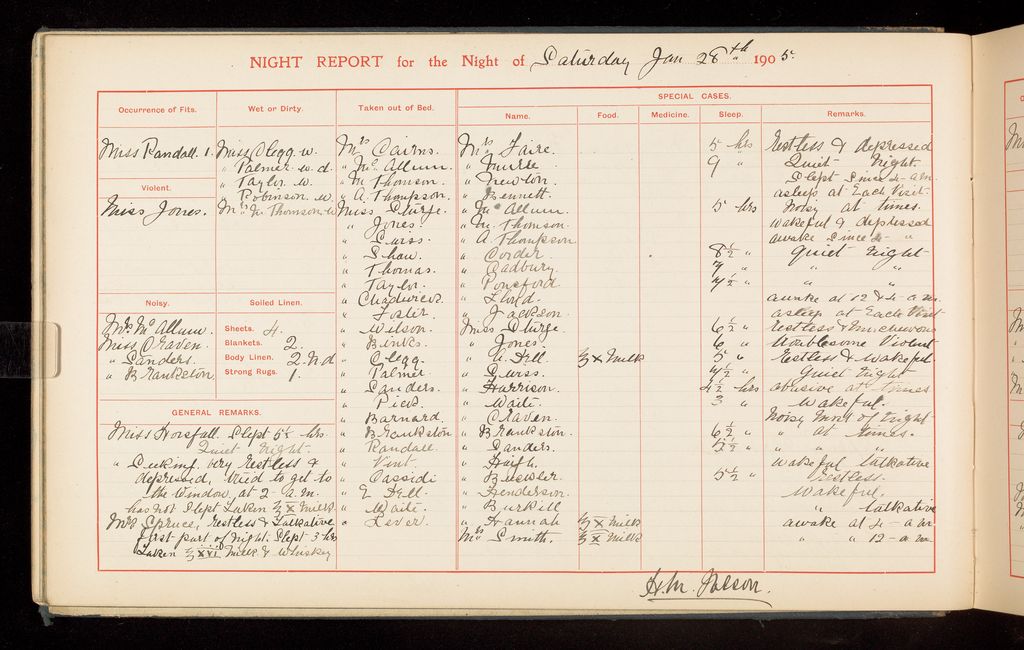 NIGHT REPORT for the Night of Saturday Jan 28th 1905.
SPECIAL CASES.
Occurrence of Fits.
Miss Randall. 1.
Violent.
Miss Jones.
Noisy.
Mrs McAllum.
Miss Craven.
" Sanders.
" Brankston.
Wet or Dirty.
Miss Clegg w.
" Palmer w. d.
" Taylor w.
Robinson. w.
Mrs M. Thomson w
Soiled Linen.
Sheets. 4.
Blankets. 2.
Body Linen. 2. N.d
Strong Rugs. 1.
GENERAL REMARKS.
Miss Horsfall. Slept 5½ hrs.
Quiet night.
" Decking, very restless &
depressed, tried to get to
the window, at 2 - a.m.
has not slept taken ℥ X milk
Mrs Spruce, restless & talkative
first part of night. Slept 3 hrs
taken ℥ XVI milk & whiskey
Taken out of Bed.
Mrs Cairns.
" McAllum.
" M Thomson.
" A. Thompson.
Miss Sturge.
" Jones.
" Shaw.
" Thomas.
" Taylor.
" Foster.
" Wilson.
" Binks.
" Clegg.
" Palmer.
" Sanders.
" Barnard.
" Brankston
" Randall.
" Vint.
" Cassidi
" E Dell.
" Waite.
" Lever.
Name.
Mrs Faire.
" Newton.
" Bennett.
" McAllum.
" M. Thomson.
" A Thompson
" Corder.
" Cadbury.
" Ponsford
" Lloyd.
" Jackson.
Miss Sturge.
" Jones.
" A. Dell.
" Harrison.
" Waite.
" Craven.
" Brankston.
" Sanders.
" Haigh.
" Brewster.
" Henderson.
" Burkill
" Hannah
Mrs Smith.
Food.
℥ X Milk
℥ X Milk
℥ X Milk
Medicine.
Sleep.
5 hrs
9 "
5 hrs
8½ "
7 "
7½ "
6½ "
6 "
5 "
7½ "
4½ hrs
3 "
6½ "
5½ "
5½ "
Remarks.
Restless & depressed
Quiet night.
Slept since 4 - a.m.
asleep at Each Visit
Noisy at times.
wakeful & depressed
awake since 2 - "
Quiet night
" "
" "
awake at 12 & 4 - a.m.
asleep at Each Visit
restless & mischievous
troublesome Violent
Restless & wakeful
Quiet night
abusive at times
wakeful.
Noisy most of night
" at times.
" " "
wakeful talkative
restless.
wakeful.
" talkative
awake at 4 - a.m
" " 12 - a.m.